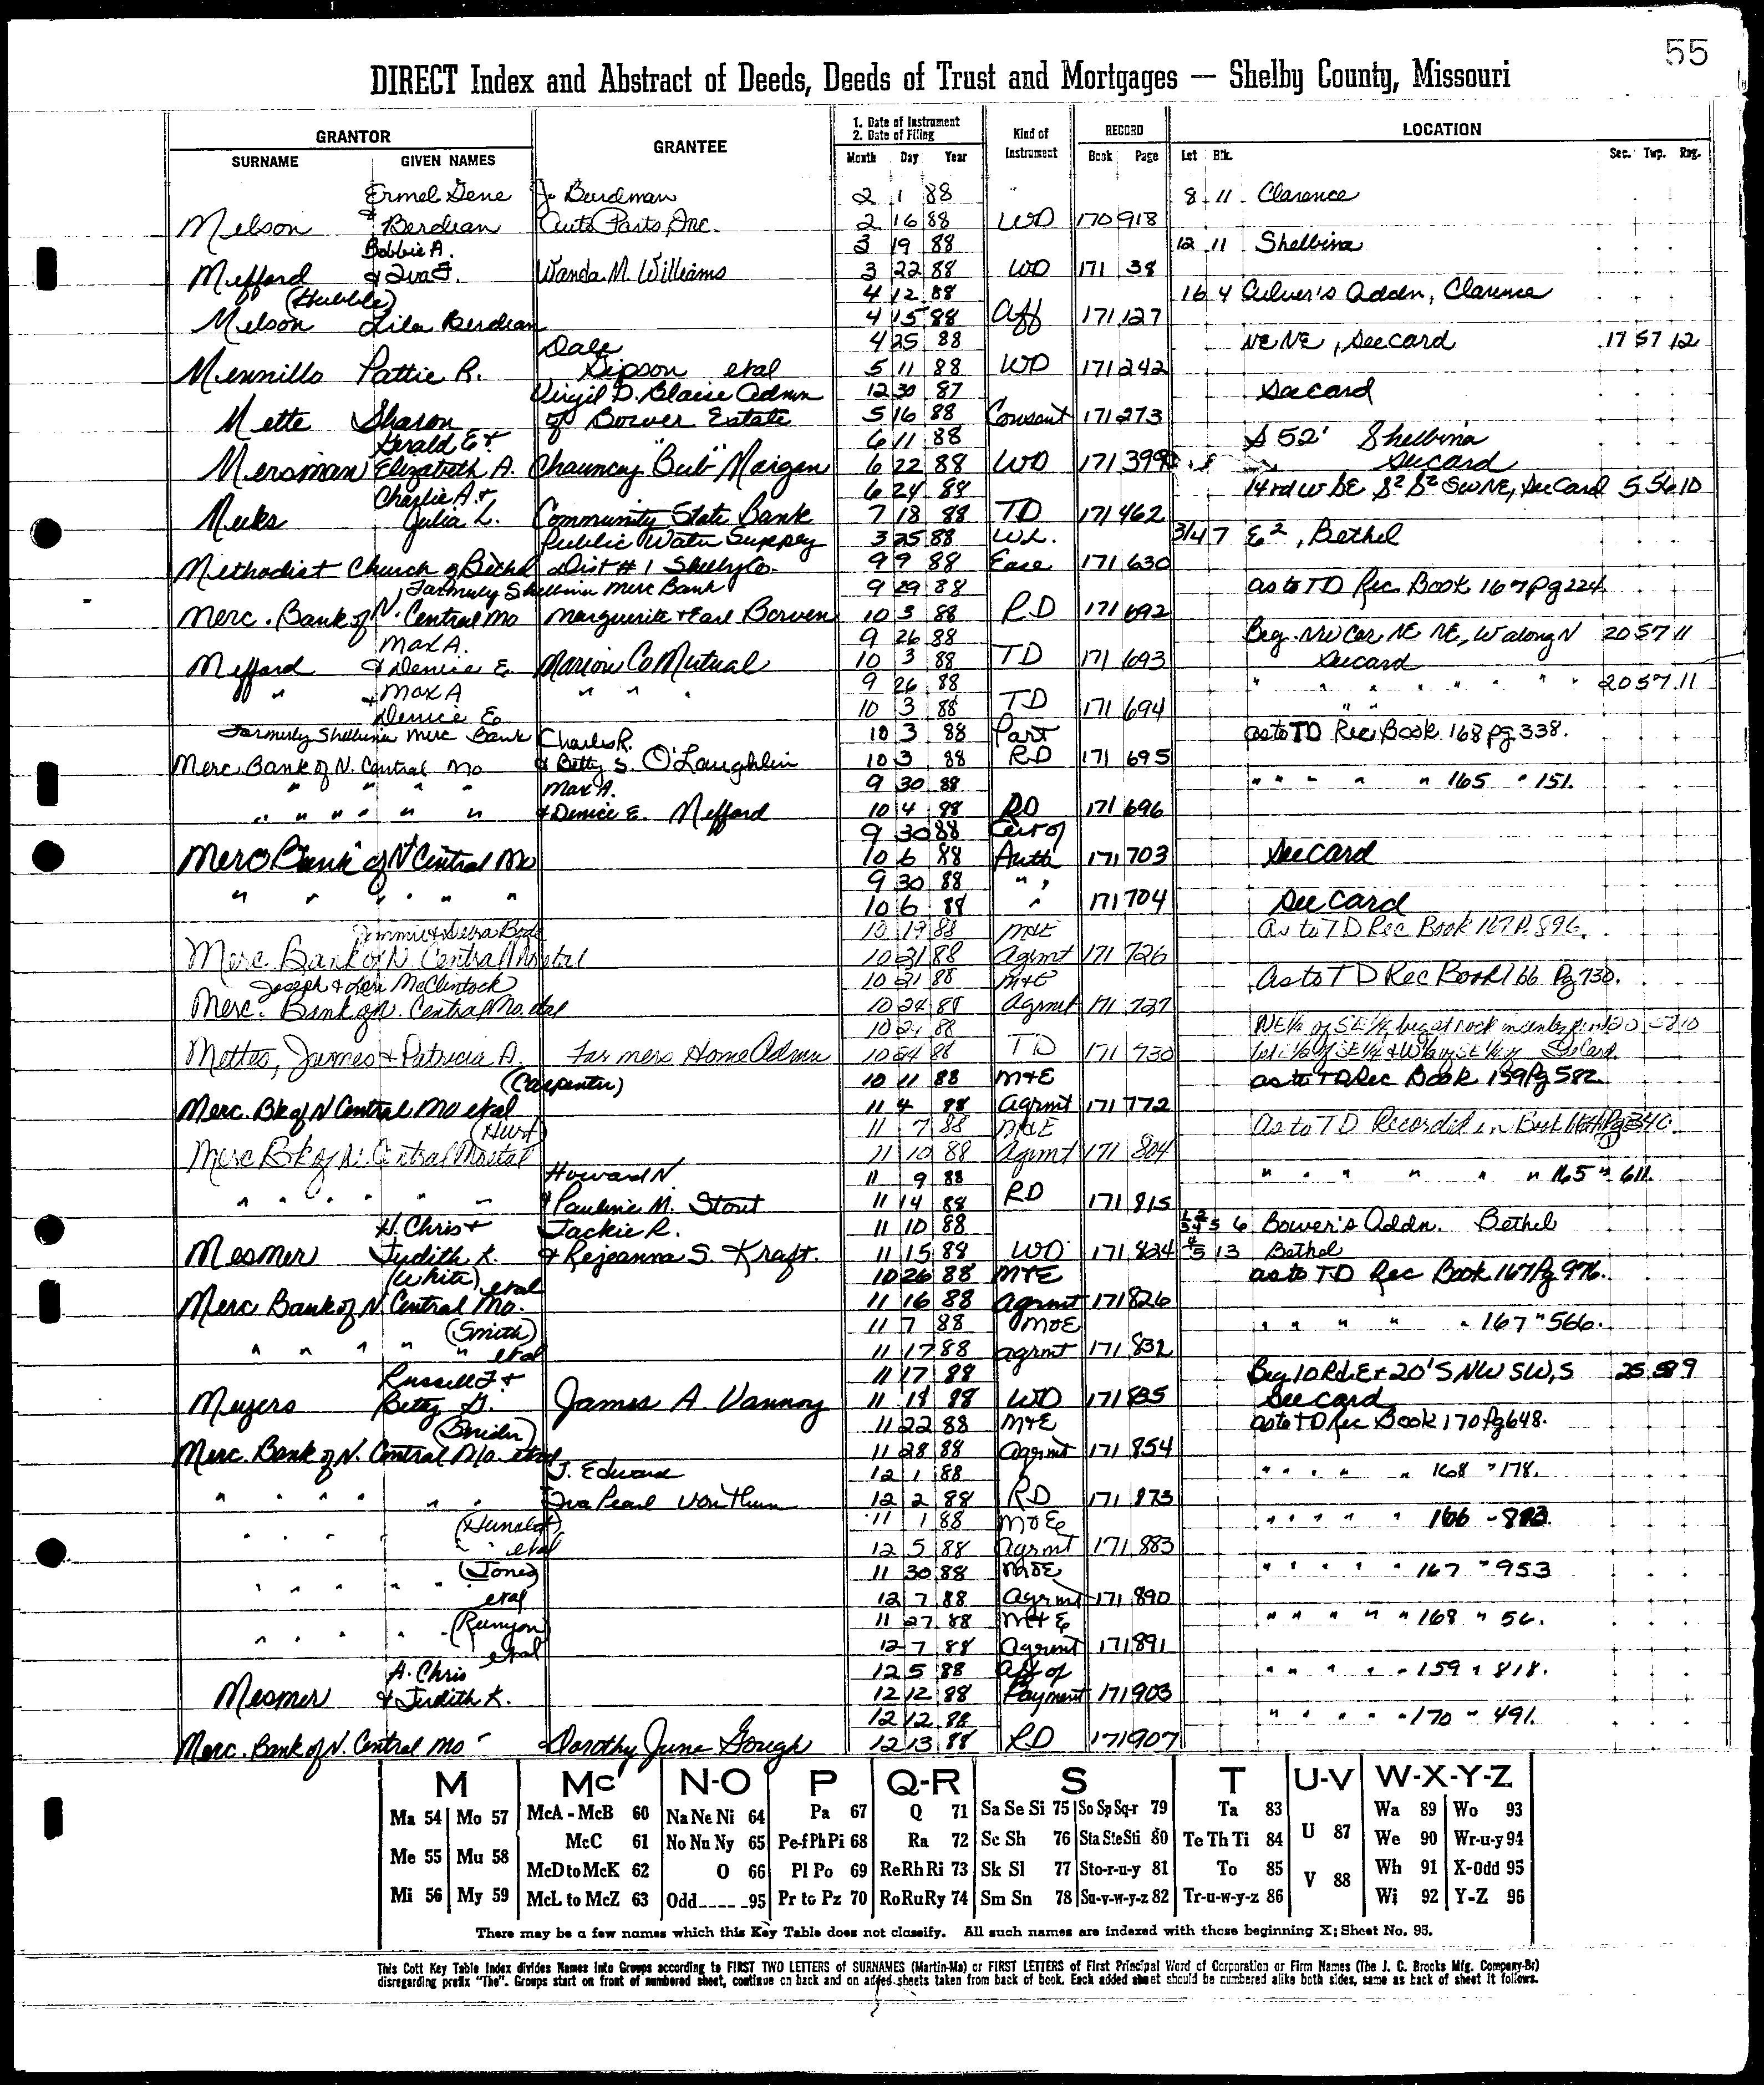 55
DIRECT Index and Abstract of Deeds, Deeds of Trust and Mortgages — Shelby County, Missouri
GRANTOR GRANTEE 1. Date of Instrument 2. Date of Filing Kind of Instrument RECORD LOCATION
SURNAME GIVEN NAMES Month Day Year Book Page Lot Blk. Sec. Twp. Rng.
Ermel Gene Jo Burdman 2 1 88 8 11 Clarence
Melson & Berdean Auto Parts, Inc. 2 16 88 WD 170 918
Bobbie A. 3 19 88 12 11 Shelbina
Mefford & Iva F. Wanda M. Williams 3 22 88 WD 171 38
(Hubble) 4 12 88 16 4 Culver's Addn, Clarence
Melson Lila Berdean 4 15 88 Aff 171 127
Dale 4 25 88 NE NE, See card 17 57 12
Mennillo Pattie R. Gipson etal 5 11 88 WD 171 242
Virgil D. Blaise Admn 12 30 87 See card
Mette Sharon of Bower Estate 5 16 88 Consent 171 273
Gerald E & 6 11 88 S 52' Shelbina
Mersman Elizabeth A. Chauncay "Bub" Morgan 6 22 88 WD 171 399 See card
Charlie A. & 6 24 88 14 rd W SE S2 S2 SW NE, See Card 5 56 10
Meeks Julia L. Community State Bank 7 18 88 TD 171 462
Public Water Supply 3 25 88 WL. 3/4 7 E2, Bethel
Methodist Church of Bethel Dist # 1 Shelby Co. 9 9 88 Ease 171 630
Formerly Shelbina Merc Bank 9 29 88 as to TD Rec Book 167 Pg 224.
Merc. Bank of N. Central Mo Marguerite & Earl Bowen 10 3 88 RD 171 692
Max A. 9 26 88 Beg. NW Cor NE NE, W along N 20 57 11
Mefford & Denice E Marion Co Mutual 10 3 88 TD 171 693 See card
" & Max A " " " 9 26 88 " " " " " " " " 20 57 11
Denice E 10 3 88 TD 171 694 " "
Formerly Shelbina Merc Bank Charles R. 10 3 88 Part as to TD Rec Book 168 pg 338.
Merc Bank of N. Central Mo & Betty S. O'Laughlin 10 3 88 RD 171 695
" " " " " Max A. 9 30 88 " " " " " 165 " 151.
" " " " " " & Denice E. Mefford 10 4 88 RD 171 696
9 30 88 Cert of
Merc Bank of N Central Mo 10 6 88 Auth 171 703 See Card
9 30 88 " "
" " " " " 10 6 88 " 171 704 See Card
Jimmie & Debra 10 19 88 M&E As to TD Rec Book 167 P. 896.
Merc. Bank of N. Central Mo etal 10 21 88 Agrmt 171 726
Joseph & Lori McClintock 10 21 88 M&E As to TD Rec Book 166 Pg 730.
Merc. Bank of N. Central Mo. etal 10 24 88 Agrmt 171 737
10 21 88 NE¼ of SE¼, beg at rock
Mettes, James & Patricia A. Farmers Home Admn 10 24 88 TD 171 730 See Card.
(Carpenter) 10 11 88 M&E as to TD Rec Book 159 Pg 582
Merc. Bk of N Central Mo etal 11 4 88 Agrmt 171 772
(Hurst) 11 7 88 M&E As to TD Recorded in Book Pg 340.
Merc Bk of N. Central Mo etal 11 10 88 Agrmt 171 804
Howard N. 11 9 88 " " " " " " 165 " 611.
" " " " " " & Pauline M. Stout 11 14 88 RD 171 815
H. Chris & Jackie R. 11 10 88 5 6 Bower's Addn. Bethel
Mesmer Judith K. & Rejeanna S. Kraft. 11 15 88 WD 171 824 4 5 13 Bethel
(White) etal 10 26 88 M&E as to TD Rec Book 167 Pg 976.
Merc Bank of N. Central Mo. 11 16 88 Agrmt 171 826
(Smith) 11 7 88 M&E " " " " " 167 " 566.
" " " " " etal 11 17 88 agrmt 171 832
Russell F & 11 17 88 Beg 10 Rd. E & 20' S NW SW, S 25 58 9
Meyers Betty G. James A. Vannoy 11 18 88 WD 171 835 See card
(Snider) 11 22 88 M&E as to TD Rec Book 170 Pg 648.
Merc. Bank of N. Central Mo. etal 11 28 88 Agrmt 171 854
J. Edward 12 1 88 " " " " " 168 " 178.
" " " " " " Iva Pearl VonThun 12 2 88 RD 171 873
11 1 88 M&E " " " " " 166 -
" " " " etal 12 5 88 Agrmt 171 883
(Jones) 11 30 88 M&E " " " " " 167 " 953
" " " " " etal 12 7 88 Agrmt 171 890
(Runyon) 11 27 88 M&E " " " " " 168 " 56.
" " " " " etal 12 7 88 Agrmt 171 891
H. Chris 12 5 88 Aff of " " " " " 159 " 818.
Mesmer & Judith K. 12 12 88 Payment 171 903
12 12 88 " " " " " 170 " 491.
Merc. Bank of N. Central Mo Dorothy June Gough 12 13 88 RD 171 907
M Mc N-O P Q-R S T U-V W-X-Y-Z
Ma 54 Mo 57 McA - McB 60 Na Ne Ni 64 Pa 67 Q 71 Sa Se Si 75 So Sp Sq-r 79 Ta 83 U 87 Wa 89 Wo 93
Me 55 Mu 58 McC 61 No Nu Ny 65 Pe-f Ph Pi 68 Ra 72 Sc Sh 76 Sta Ste Sti 80 Te Th Ti 84 We 90 Wr-u-y 94
McD to McK 62 O 66 Pl Po 69 Re Rh Ri 73 Sk Sl 77 Sto-r-u-y 81 To 85 V 88 Wh 91 X-Odd 95
Mi 56 My 59 McL to McZ 63 Odd 95 Pr to Pz 70 Ro Ru Ry 74 Sm Sn 78 Su-v-w-y-z 82 Tr-u-w-y-z 86 Wi 92 Y-Z 96
There may be a few names which this Key Table does not classify. All such names are indexed with those beginning X; Sheet No. 95.
This Cott Key Table Index divides Names into Groups according to FIRST TWO LETTERS of SURNAMES (Martin-Ma) or FIRST LETTERS of First Principal Word of Corporation or Firm Names (The J. C. Brooks Mfg. Company-Br)
disregarding prefix "The". Groups start on front of numbered sheet, continue on back and on added sheets taken from back of book. Each added sheet should be numbered alike both sides, same as back of sheet it follows.